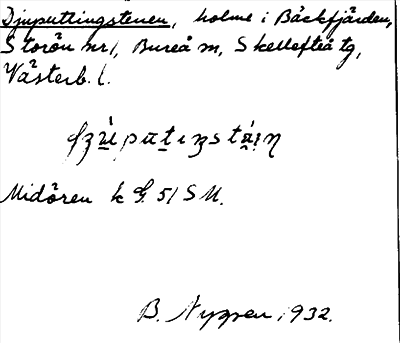 Djuputtingstenen, holme i Bäckfjärden,
Storön nr 1, Bureå sn, Skellefteå tg,
Västerb. l.
Midören k G. 51 SM.
B. Nygren, 1932.